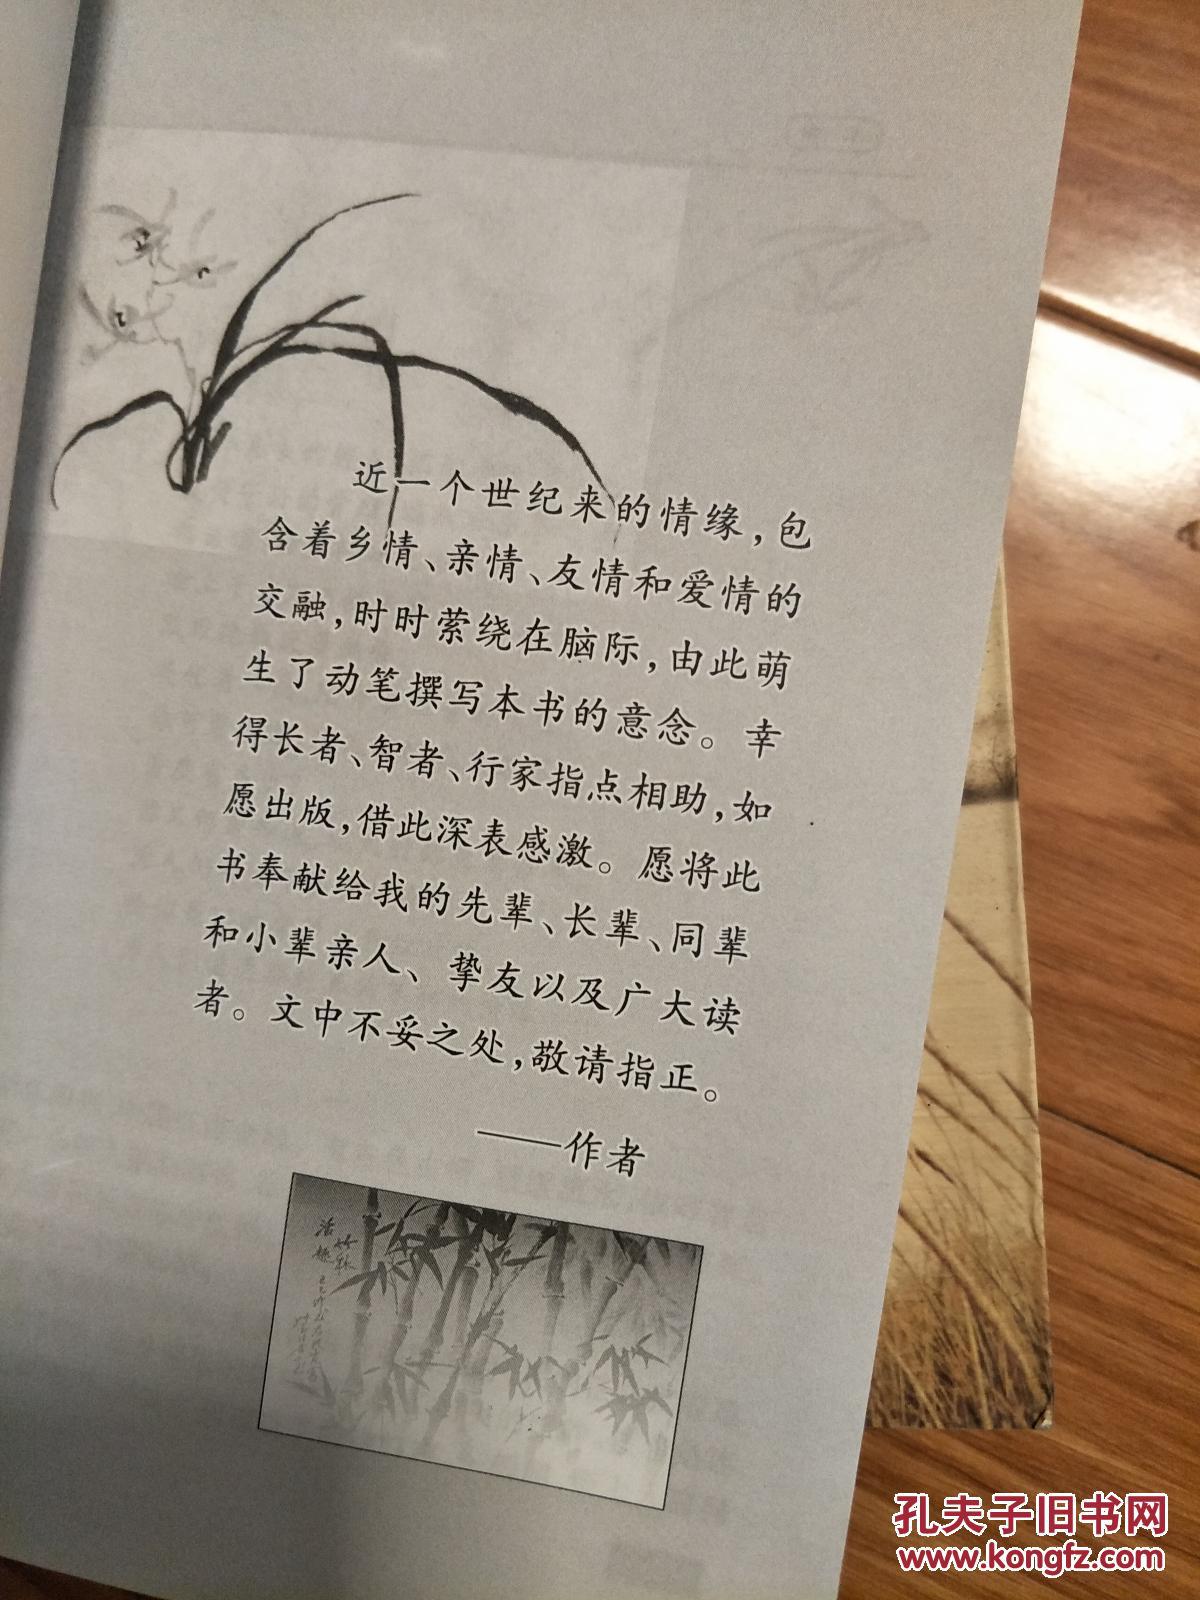 近一个世纪来的情缘，包
含着乡情、亲情、友情和爱情的
交融，时时萦绕在脑际，由此萌
生了动笔撰写本书的意念。幸
得长者、智者、行家指点相助，如
愿出版，借此深表感激。愿将此
书奉献给我的先辈、长辈、同辈
和小辈亲人、挚友以及广大读
者。文中不妥之处，敬请指正。
——作者
竹林
活趣
孔夫子旧书网
www.kongfz.com